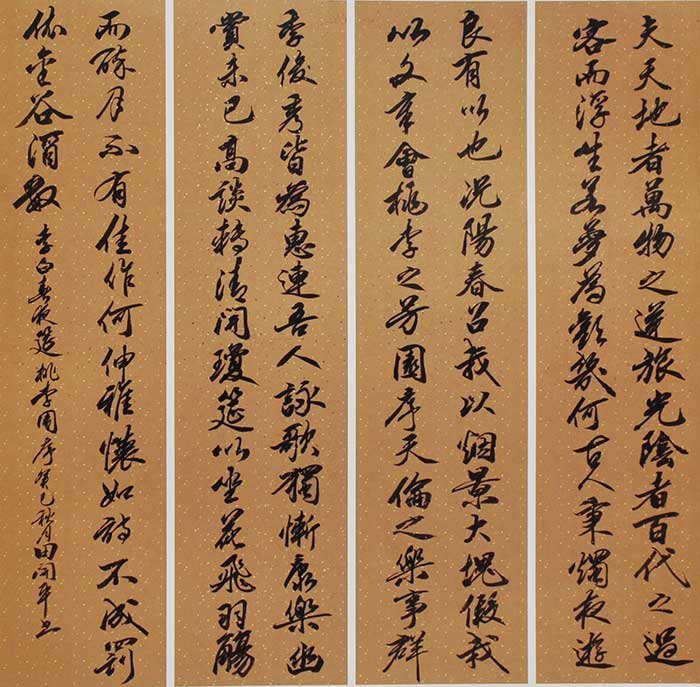 夫天地者萬物之逆旅光陰者百代之過
客而浮生若夢為歡幾何古人秉燭夜遊
良有以也況陽春召我以烟景大塊假我
以文章會桃李之芳園序天倫之樂事群
季俊秀皆為惠連吾人詠歌獨慚康樂幽
賞未已高談轉清開瓊筵以坐花飛羽觴
而醉月不有佳作何伸雅懷如詩不成罰
依金谷酒數 李白春夜筵桃李園序癸巳秋月田開平书